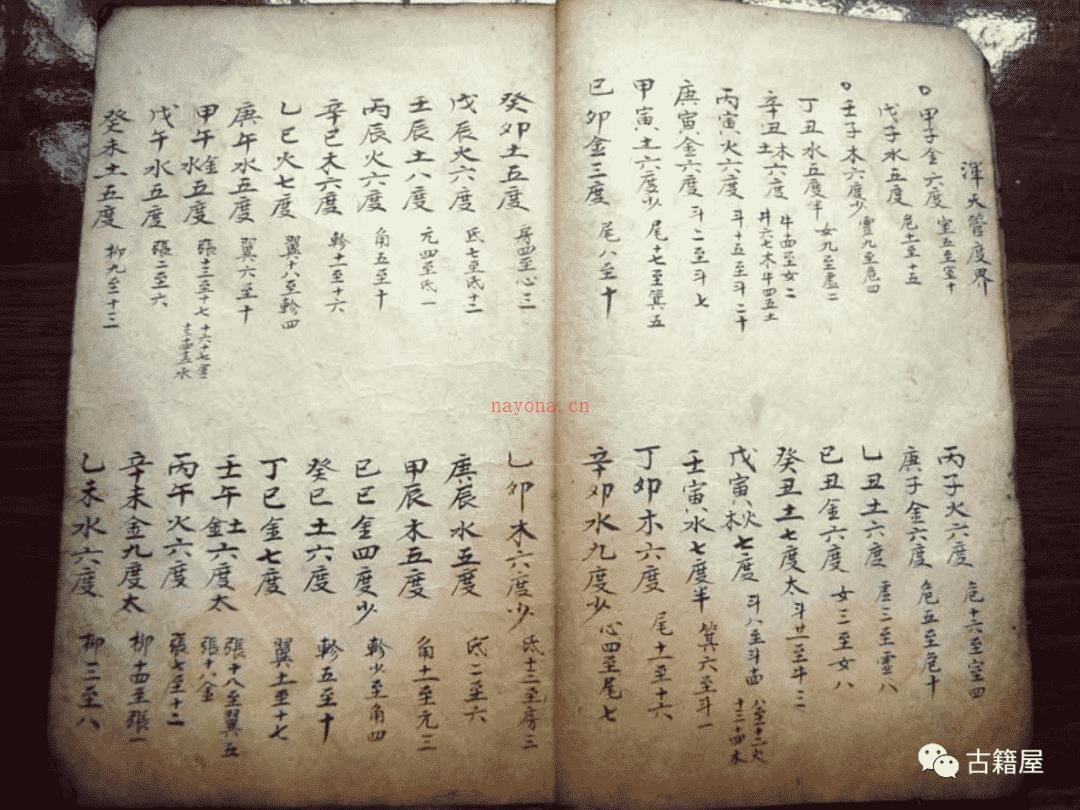 渾天管度界
甲子金六度 室五至室十
戊子水五度 危十一至十五
壬子木六度少 虛九至危四
丁丑水五度半 女九至虛二
辛丑木土六度 牛四至女二 井六七木牛四五土
丙寅火六度 斗十五至斗二十
庚寅金六度 斗二至斗七
甲寅土六度少 尾十七至箕五
己卯金三度 尾八至十
丙子火六度 危十六至室四
庚子金六度 危五至危十
乙丑土六度 虛三至虛八
己丑金六度 女三至女八
癸丑土七度太 斗廿一至牛三
戊寅火木七度 斗八至斗十四 八至十二火 十三十四木
壬寅水七度半 箕六至斗一
丁卯木六度 尾十一至十六
辛卯水九度少 心四至尾七
癸卯土五度 房四至心三
戊辰火六度 氐七至氐十二
壬辰土八度 亢四至氐一
丙辰火六度 角五至十
辛巳木六度 軫十一至十六
乙巳火七度 翼十八至軫四
庚午水五度 翼六至十
甲午金水五度 張十三至十七 十六十七金 十三十四十五水
戊午水五度 張二至六
癸未土五度 柳九至十三
乙卯木六度少 氐十三至房三
庚辰水五度 氐二至六
甲辰木五度 角十一至亢三
己巳金四度少 軫少至角四
癸巳土六度 軫五至十
丁巳金七度 翼十一至十七
壬午土金六度太 張十八至翼五 張十八金
丙午火六度 張七至十二
辛未金九度太 柳十四至張一
乙未水六度 柳三至八
nayona.cn
古籍屋